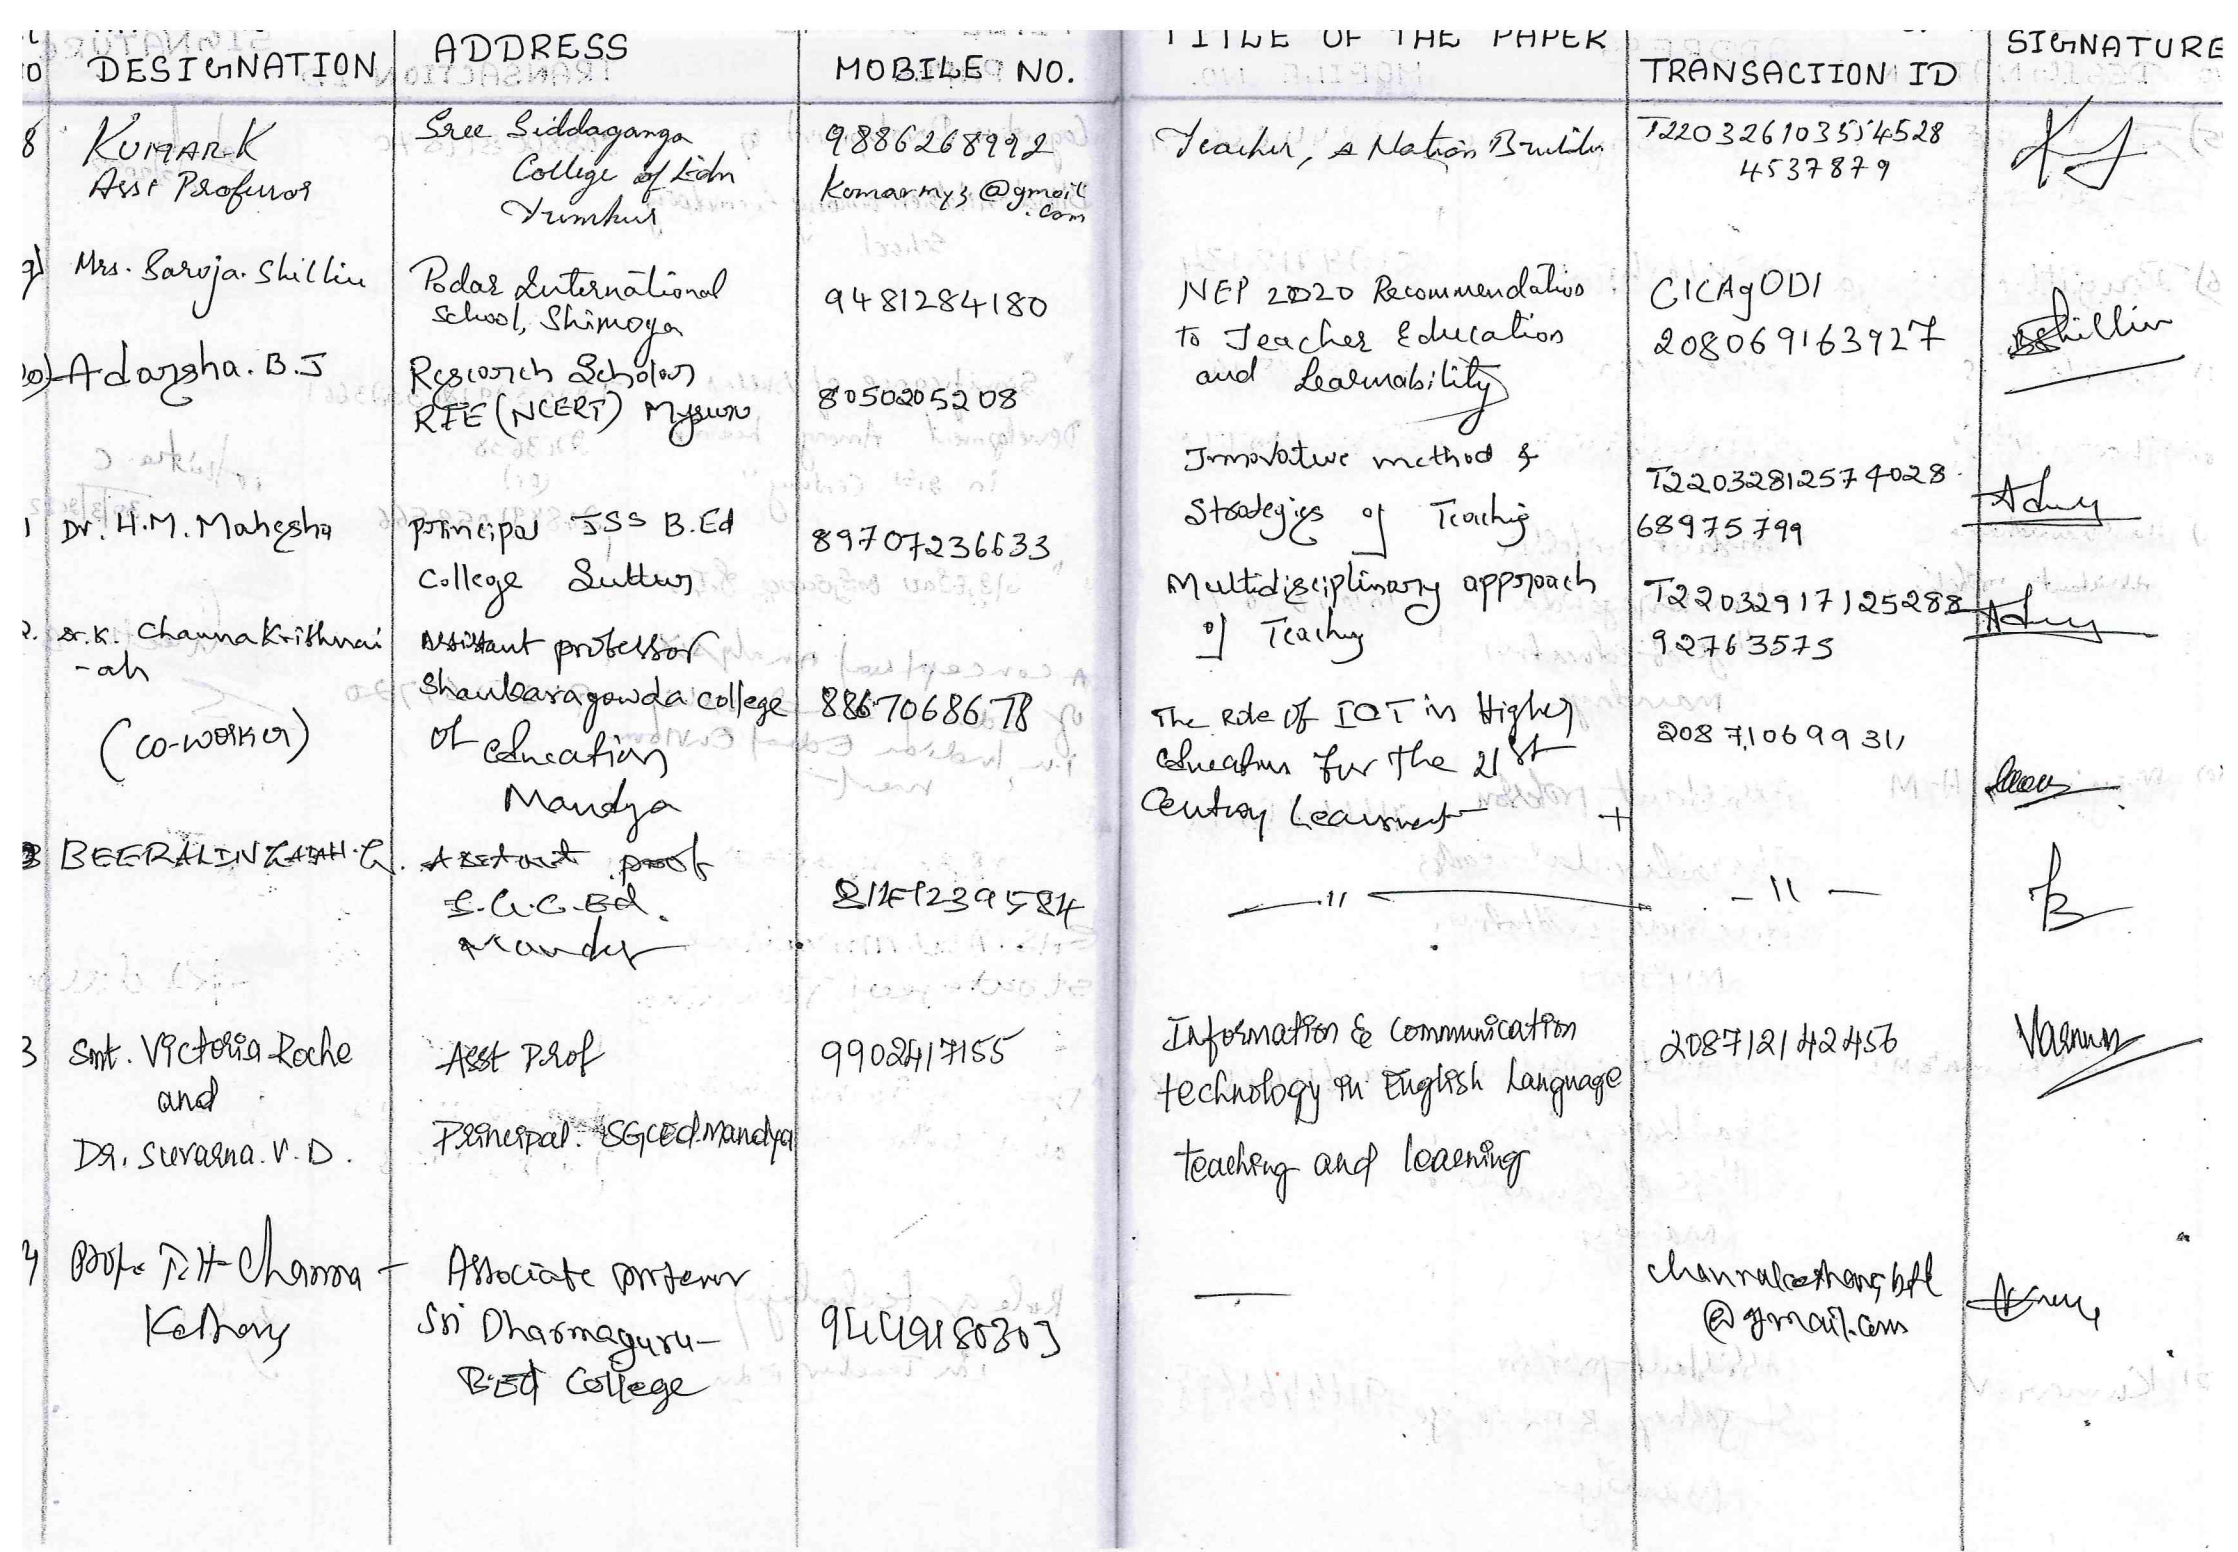 DESIGNATION
ADDRESS
MOBILE NO.
TITLE OF THE PAPER
TRANSACTION ID
SIGNATURE
8
KUMAR.K
Asst Professor
Sree Siddaganga
College of Edn
Tumkur
9886268992
Kumarmys@gmail
.com
Teacher, a Nation Builder
T220326103554528
4537879
9)
Mrs. Saroja. Shillin
Podar International
School, Shimoga
9481284180
NEP 2020 Recommendations
to Teacher Education
and Learnability
CICAgODI
208069163927
Shillin
Adarsha. B.J
Research Scholar
RIE (NCERT) Mysuru
8050205208
Innovative method &
Strategies of Teaching
T22032812574028
68975799
1
Dr. H.M. Mahesha
principal JSS B.Ed
College Suttur
89707236633
Multidisciplinary approach
of Teaching
T22032917125288
92763575
2.
Dr.K. Channa Krishnai
-ah
(co-worker)
Assistant professor
Shankaragowda college
of education
Mandya
8867068678
The Role of IOT in Higher
education for the 21st
Century Learners
208710699311
BEERALINGAIAH. G.
prof
S.G.C.Ed.
Mandya
8147239584
— 11 —
- 11 —
3
Smt. Victoria Roche
and
Dr. Suvarna. V. D.
Asst Prof
Principal. SGCEd.Mandya
9902417155
Information & Communication
technology in English Language
teaching and learning
208712142456
4
Prof.
Associate professor
Sri Dharmaguru-
B.Ed College
9449180303
—
@gmail.com